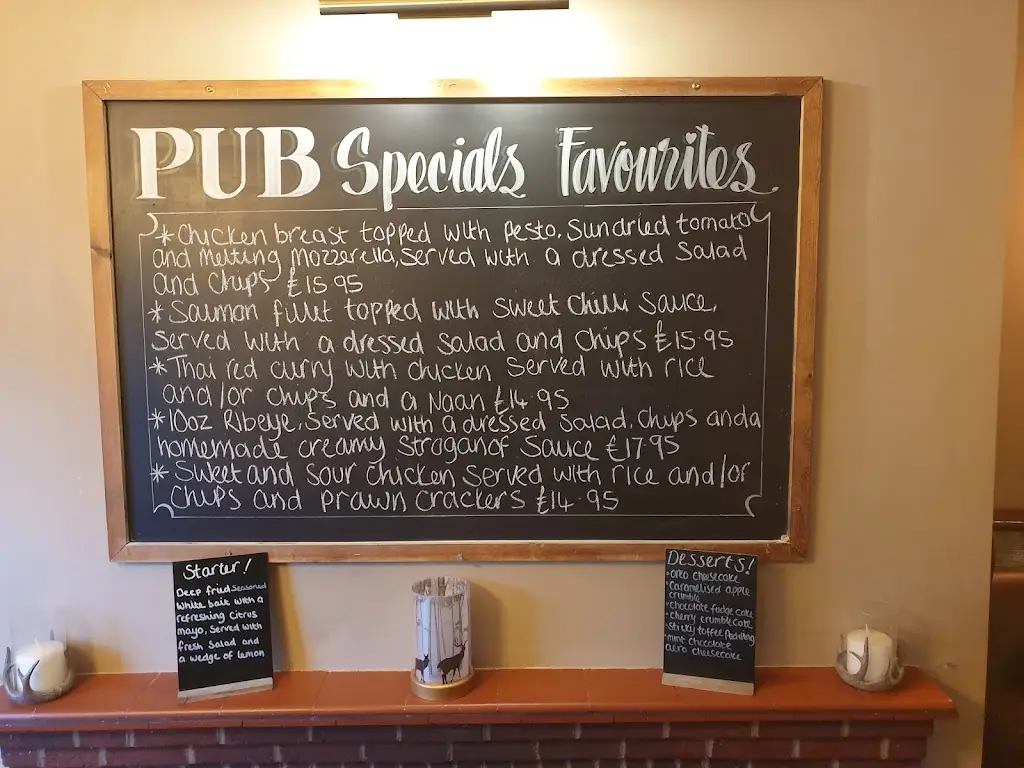 PUB Specials Favourites
* Chicken breast topped with Pesto, Sundried tomato
and Melting Mozzerella, Served with a dressed Salad
and Chips £15.95
* Salmon fillet topped with Sweet Chilli Sauce,
Served with a dressed Salad and Chips £15.95
* Thai red curry with chicken Served with rice
and/or chips and a Naan £14.95
* 10oz Ribeye, Served with a dressed Salad, Chips and a
homemade creamy Stroganof Sauce £17.95
* Sweet and Sour Chicken Served with rice and/or
Chips and Prawn Crackers £14.95
Starter!
Deep fried Seasoned
White bait with a
refreshing Citrus
mayo, Served with
fresh Salad and
a wedge of lemon
Desserts!
• Oreo cheesecake
• Caramelised apple
crumble
• Chocolate fudge cake
• cherry crumble cake
• Sticky toffee Pudding
• mint chocolate
aero cheesecake